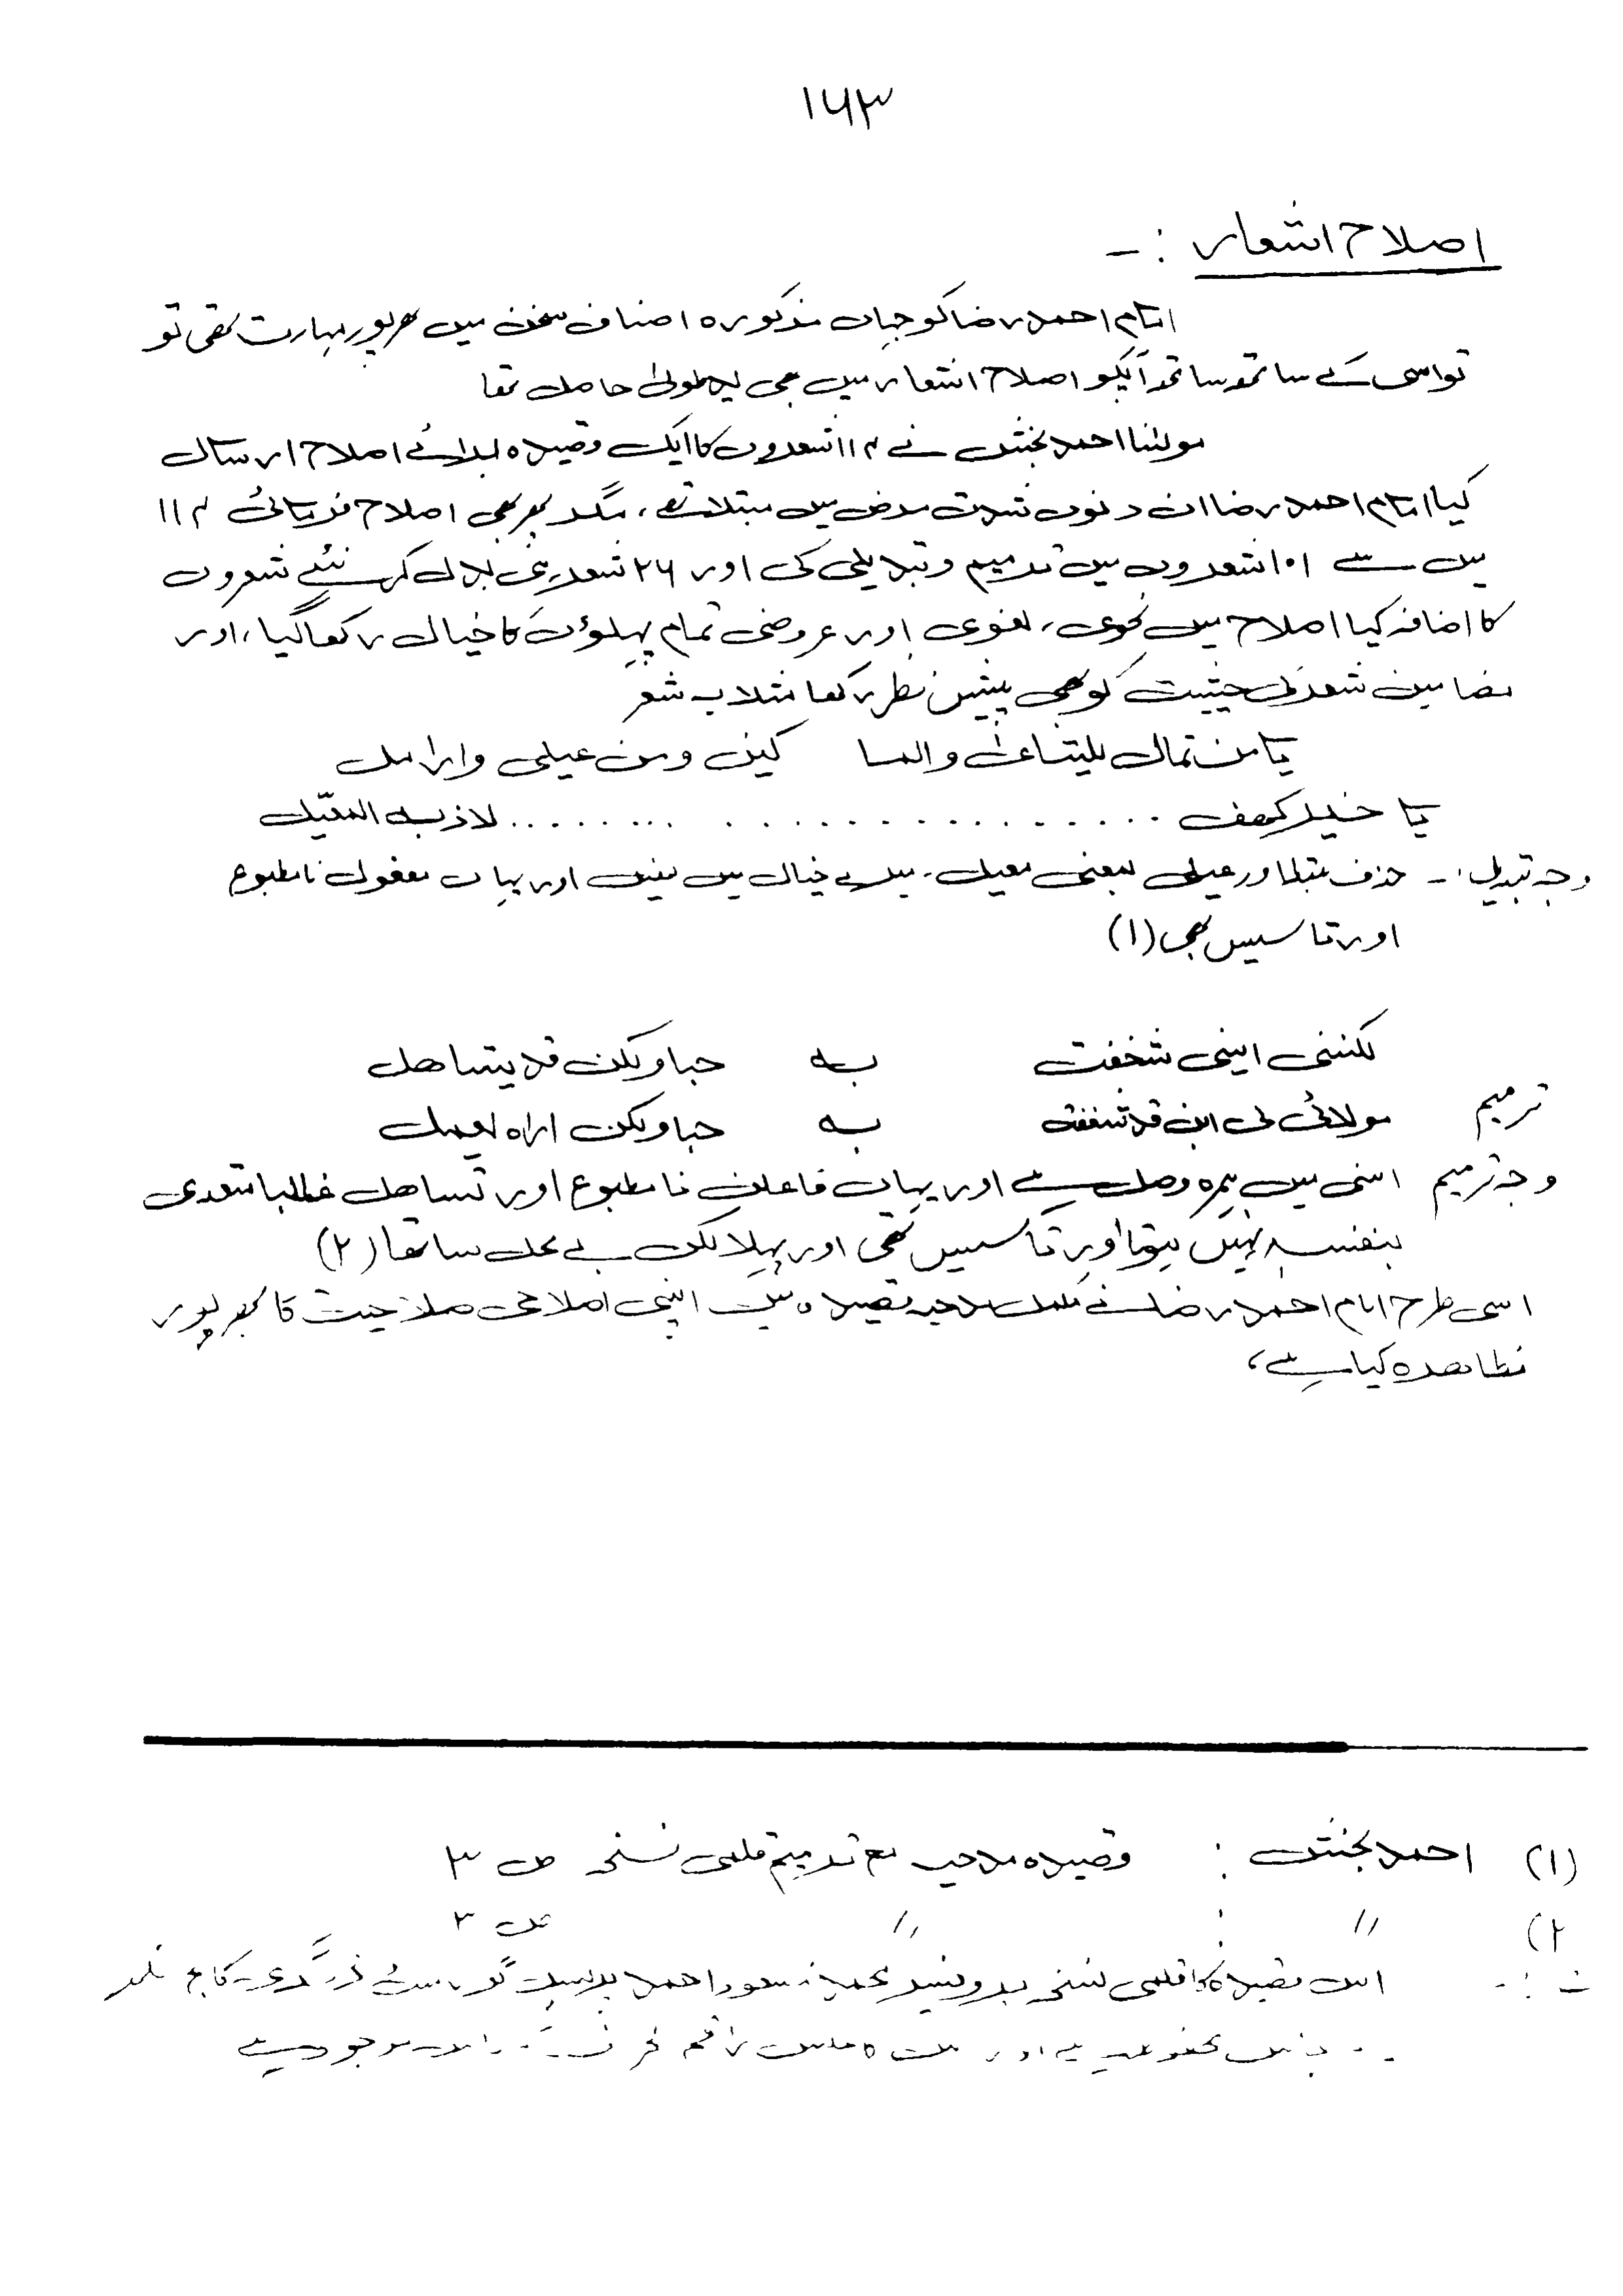 ۱۶۳
اصلاح اشعار :-
امام احمد رضا کو جہاں مذکورہ اصناف سخن میں بھرپور مہارت تھی تو
تو اسی کے ساتھ ساتھ آپکو اصلاح اشعار میں بھی ید طولیٰ حاصل تھا
مولٰنا احمد بخش نے ۱۱۴ شعروں کا ایک قصیدہ برائے اصلاح ارسال
کیا امام احمد رضا ان دنوں شدت مرض میں مبتلا تھے، مگر پھر بھی اصلاح فرمائی ۱۱۴
میں سے ۱۰۱ شعروں میں ترمیم و تبدیلی کی اور ۲۶ شعر بدل کر نئے شعروں
کا اضافہ کیا اصلاح میں نحوی، لغوی اور عروضی تمام پہلوؤں کا خیال رکھا گیا، اور
مضامین شعر کی حیثیت کو بھی پیش نظر رکھا مثلاً یہ شعر
یا من ثمال لليتامىٰ والمسا کین ومن عیلی وارامل
یا خیر کہف . . . . . . . . . . . . . . . . . . . . لاذ به المعیّل
وجہ تبدیل :- حذف مبتدا اور عیلی بمعنی معیل۔ میرے خیال میں نہیں اور یہاں مفعول نامطبوع
اور تاسیس بھی (۱)
لکننی اننی شغفت به حبا ولکن قد یتساهل
ترمیم مولائی لی ابن قد شغفت به حبا ولکن اراه یهمل
وجہ ترمیم اننی میں ہمزہ وصل ہے اور یہاں فاعلن نامطبوع اور تساهل غالبا متعدی
بنفسہ نہیں ہوتا اور تاسیس تھی اور پہلا لکن بے محل سا تھا (۲)
اسی طرح امام احمد رضا نے مکمل مدحیہ قصیدہ میں اپنی اصلاحی صلاحیت کا بھرپور
مظاہرہ کیا ہے،
(۱) احمد بخش : قصیدہ مدحیہ مع ترمیم قلمی نسخہ ص ۳
۲) // : // ص ۳
اس قصیدہ کا قلمی نسخہ پروفیسر محمد مسعود احمد پرنسپل گورنمنٹ ڈگری کالج
محفوظ ہے اور راقم موجود ہے